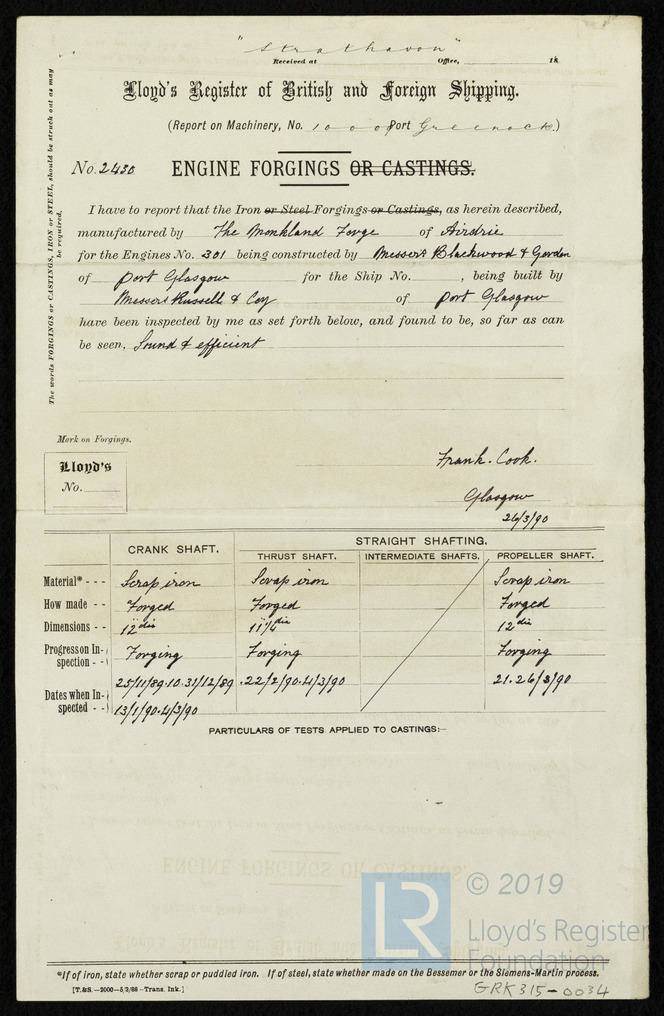 "Strathavon"
Received at Office, 18
Lloyd's Register of British and Foreign Shipping.
(Report on Machinery, No. 10008 Port Greenock.)
No. 2430 ENGINE FORGINGS OR CASTINGS.
The words FORGINGS or CASTINGS, IRON or STEEL, should be struck out as may be required.
I have to report that the Iron or Steel Forgings or Castings, as herein described,
manufactured by The Monkland Forge of Airdrie
for the Engines No. 301 being constructed by Messrs Blackwood & Gordon
of Port Glasgow for the Ship No. , being built by
Messrs Russell & Coy of Port Glasgow
have been inspected by me as set forth below, and found to be, so far as can
be seen, Sound & efficient
Mark on Forgings.
Lloyd's
No.
Frank. Cook.
Glasgow
26/3/90
CRANK SHAFT. STRAIGHT SHAFTING.
THRUST SHAFT. INTERMEDIATE SHAFTS. PROPELLER SHAFT.
Material* - - - Scrap iron Scrap iron Scrap iron
How made - - Forged Forged Forged
Dimensions - - 12" dia 11¼" dia 12" dia
Progress on Inspection - - Forging Forging Forging
Dates when Inspected - - 25/11/89.10.31/12/89 .22/2/90.4/3/90 21.26/3/90
13/1/90.4/3/90
PARTICULARS OF TESTS APPLIED TO CASTINGS:—
LR
© 2019
Lloyd's Register
Foundation
*If of iron, state whether scrap or puddled iron. If of steel, state whether made on the Bessemer or the Siemens-Martin process.
[T.&S.—2000—5/3/88—Trans. Ink.]
GRK315-0034